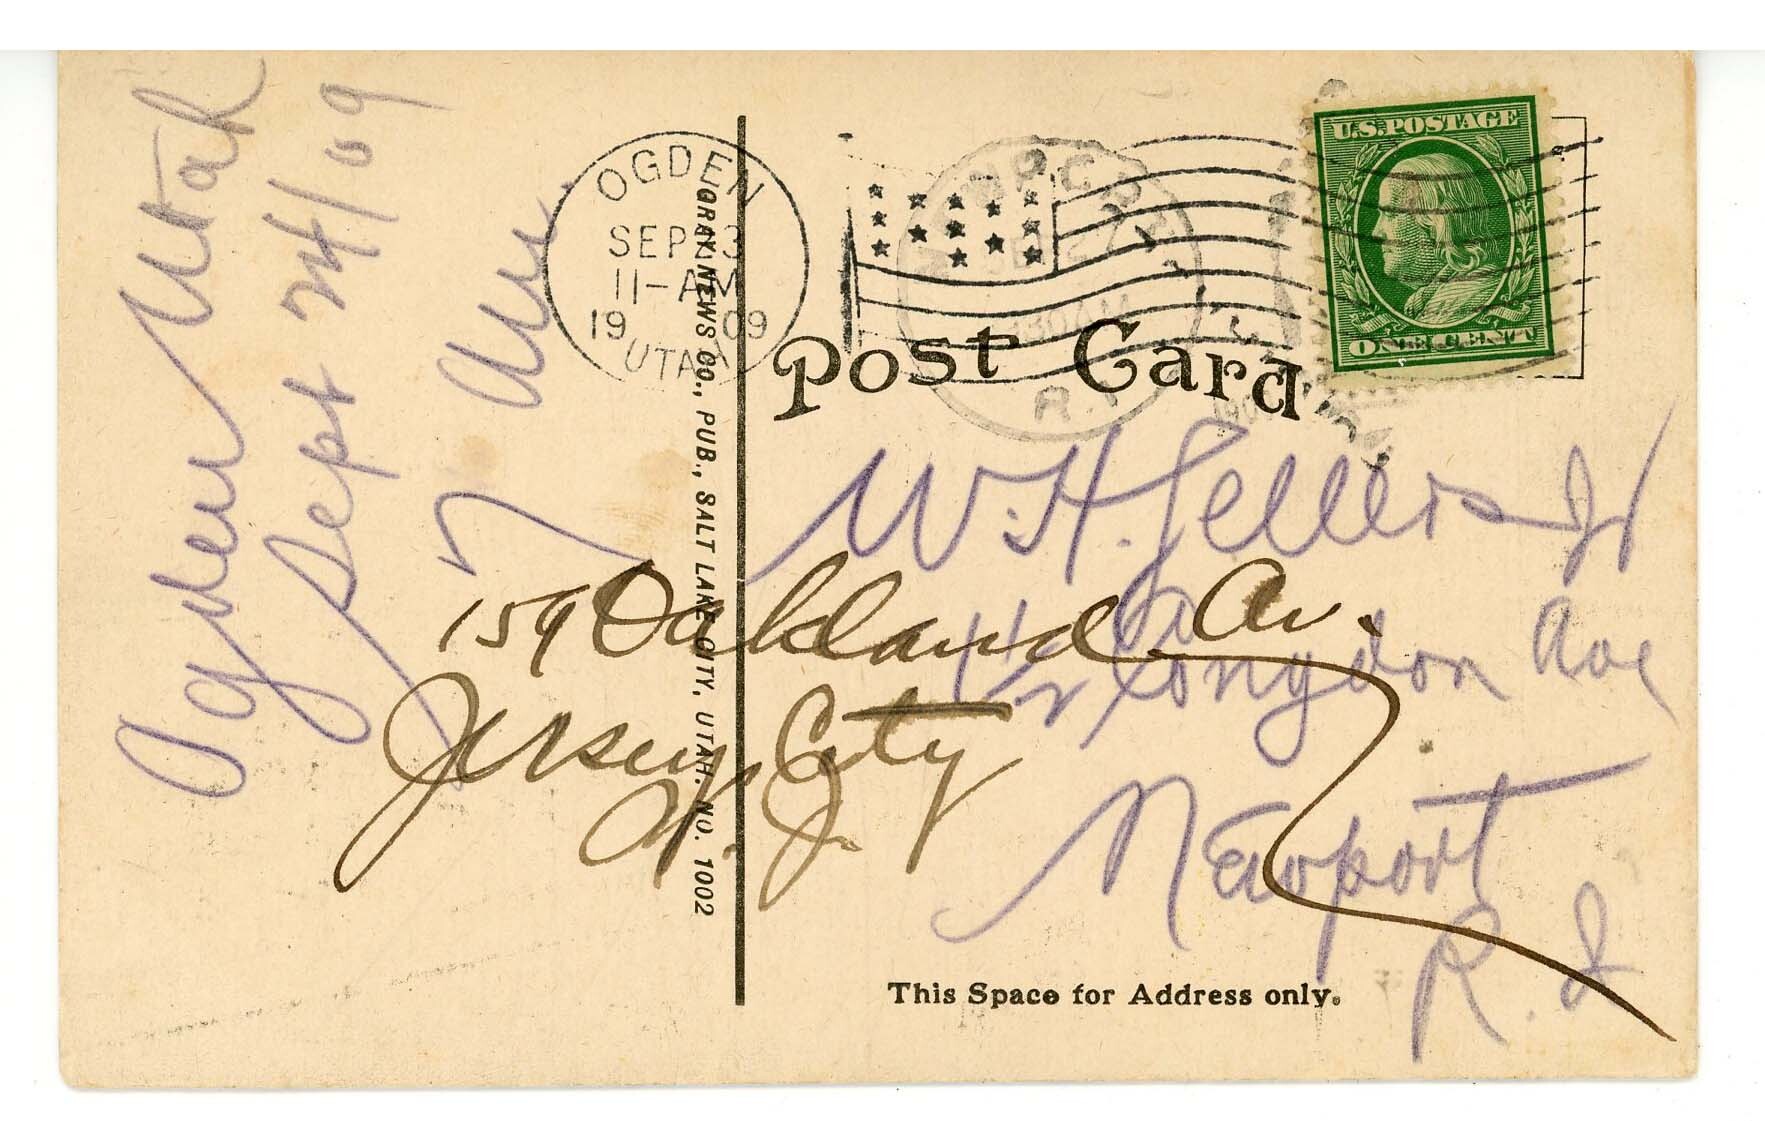 Ogden Utah
Sept 24/09
OGDEN
SEP 23
11-AM
1909
UTAH
GRAY NEWS CO., PUB., SALT LAKE CITY, UTAH. NO. 1002
R.I.
U.S. POSTAGE
ONE CENT
Post Card
W. H. Sellers Jr
Congdon Ave
Newport
R. I
159 Oakland Av.
Jersey City
N. J.
This Space for Address only.